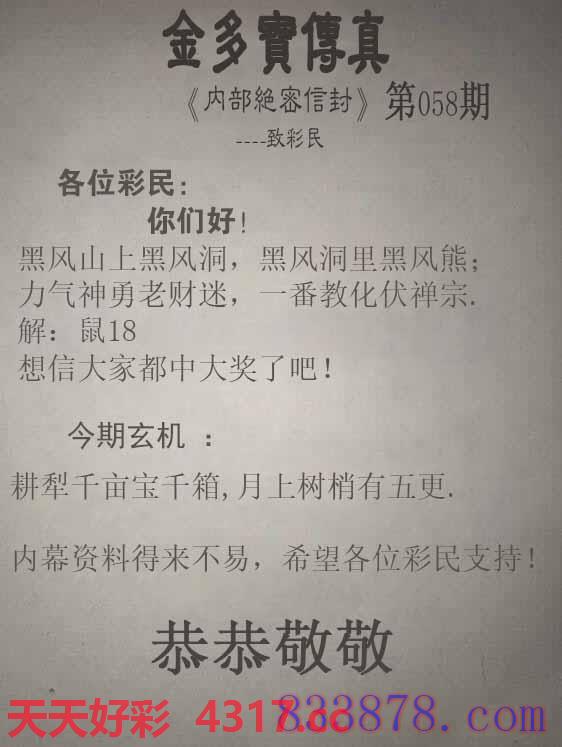 金多寶傳真
《内部絶密信封》第058期
----致彩民
各位彩民:
你们好!
黑风山上黑风洞，黑风洞里黑风熊；
力气神勇老财迷，一番教化伏禅宗.
解：鼠18
想信大家都中大奖了吧！
今期玄机 ：
耕犁千亩宝千箱,月上树梢有五更.
内幕资料得来不易，希望各位彩民支持！
恭恭敬敬
天天好彩 4317.cc 833878.com